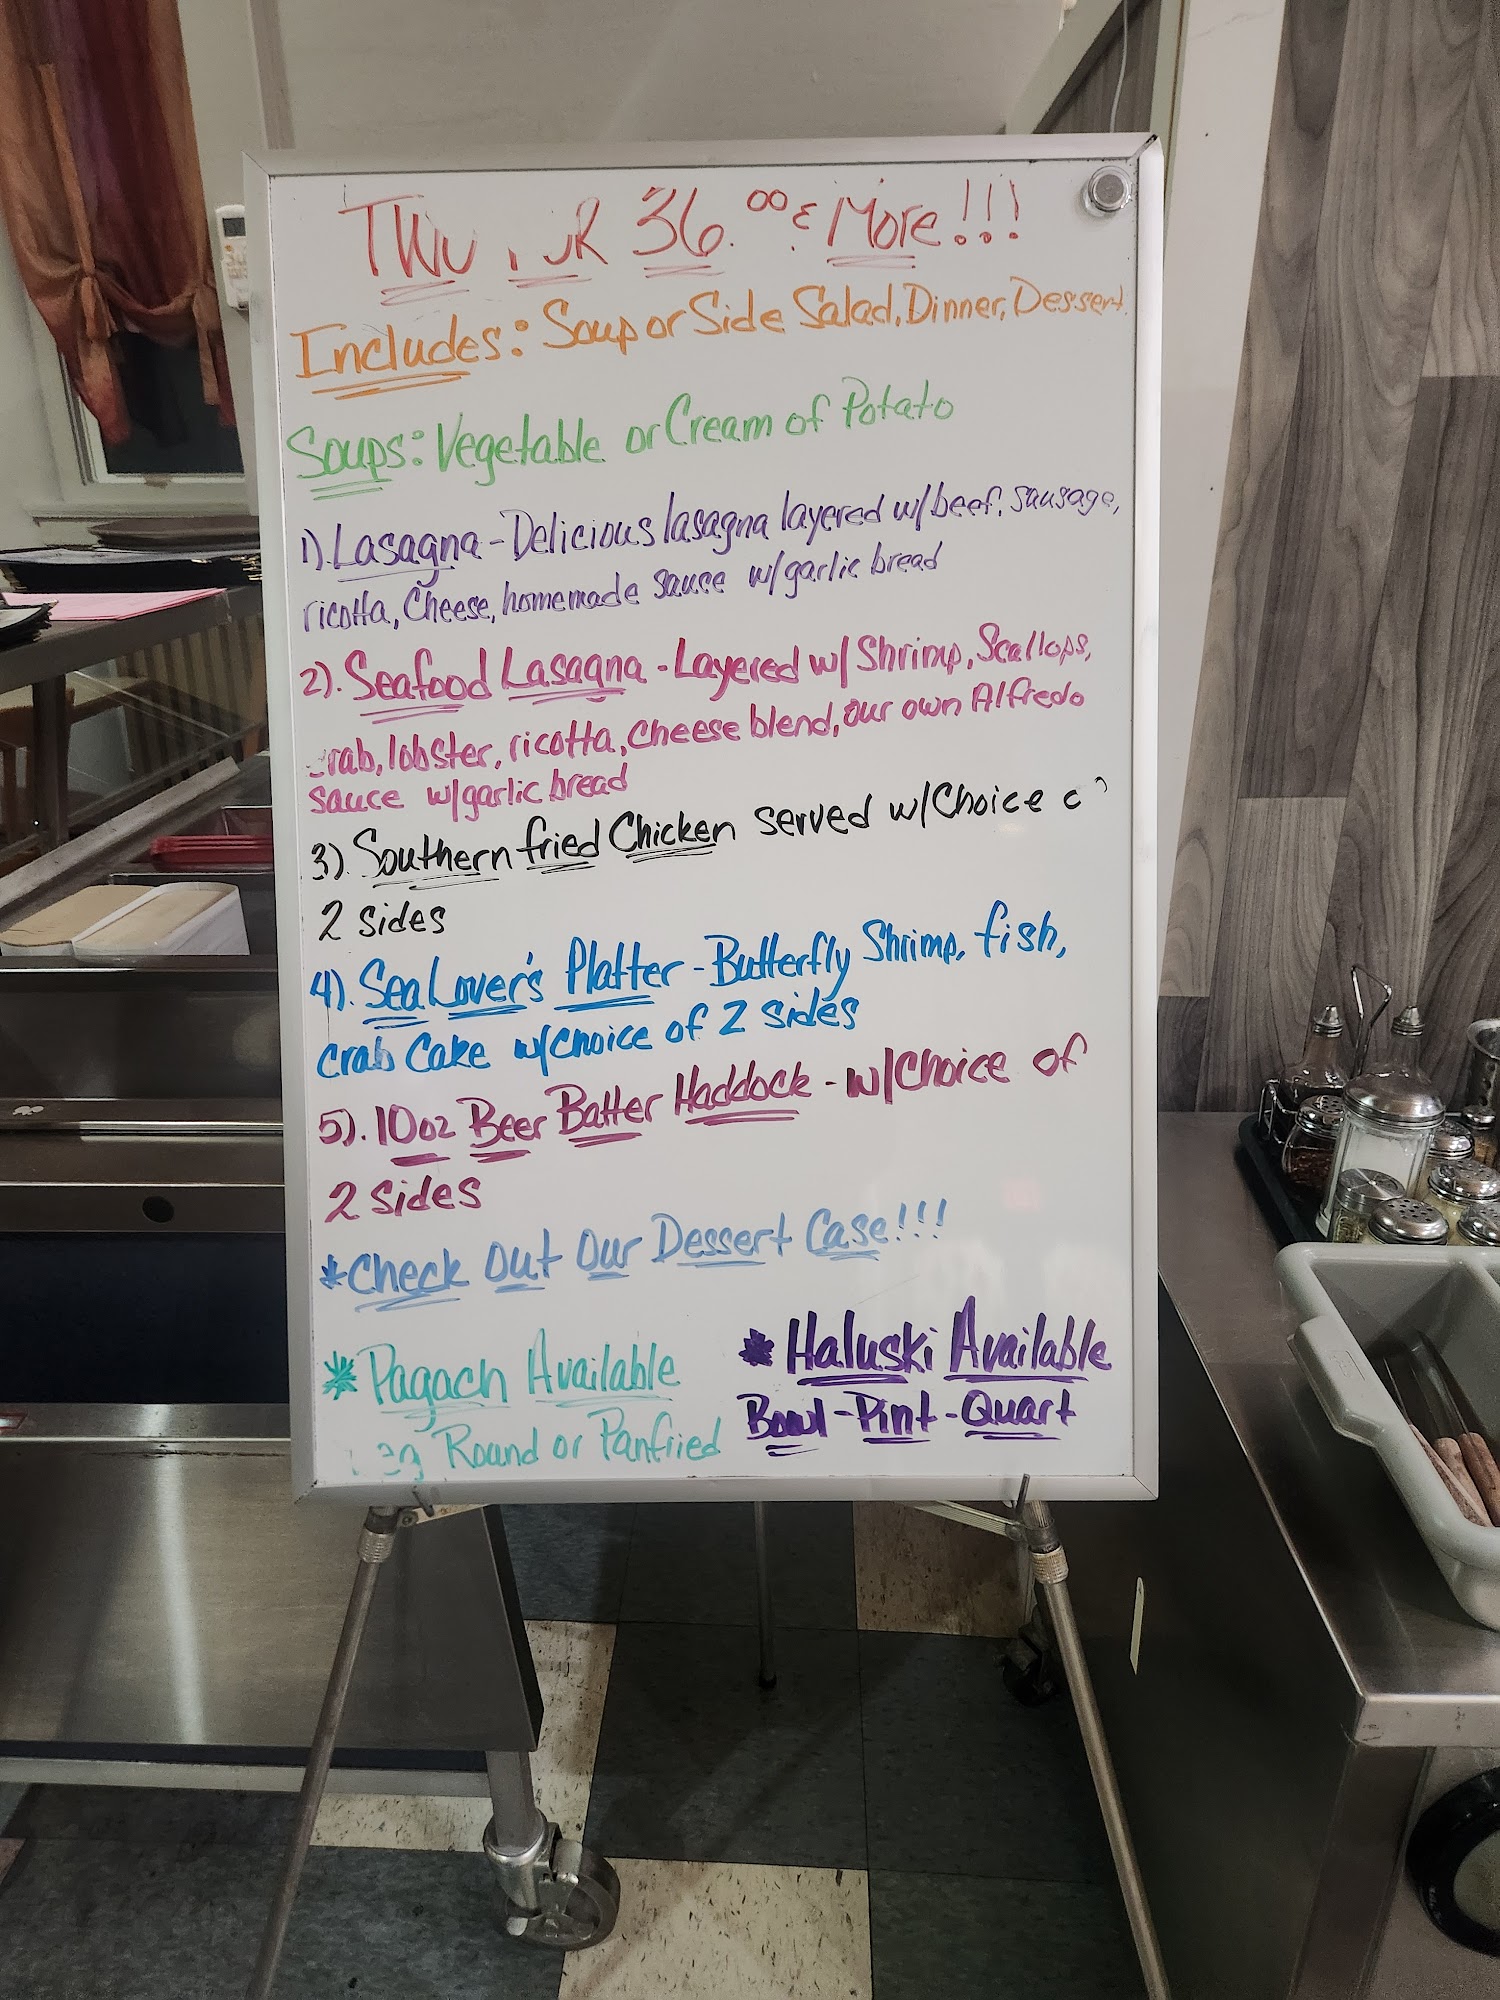 TWO FOR 36.00 & More!!!
Includes: Soup or Side Salad, Dinner, Dessert
Soups: Vegetable or Cream of Potato
1). Lasagna - Delicious lasagna layered w/beef, sausage,
ricotta, Cheese, homemade sauce w/garlic bread
2). Seafood Lasagna - Layered w/ Shrimp, Scallops,
crab, lobster, ricotta, Cheese blend, our own Alfredo
sauce w/garlic bread
3). Southern fried Chicken served w/Choice of
2 sides
4). Sea Lover's Platter - Butterfly Shrimp, fish,
crab Cake w/choice of 2 sides
5). 10oz Beer Batter Haddock - w/Choice of
2 sides
*Check Out Our Dessert Case!!!
* Pagach Available
Round or Panfried
* Haluski Available
Bowl - Pint - Quart